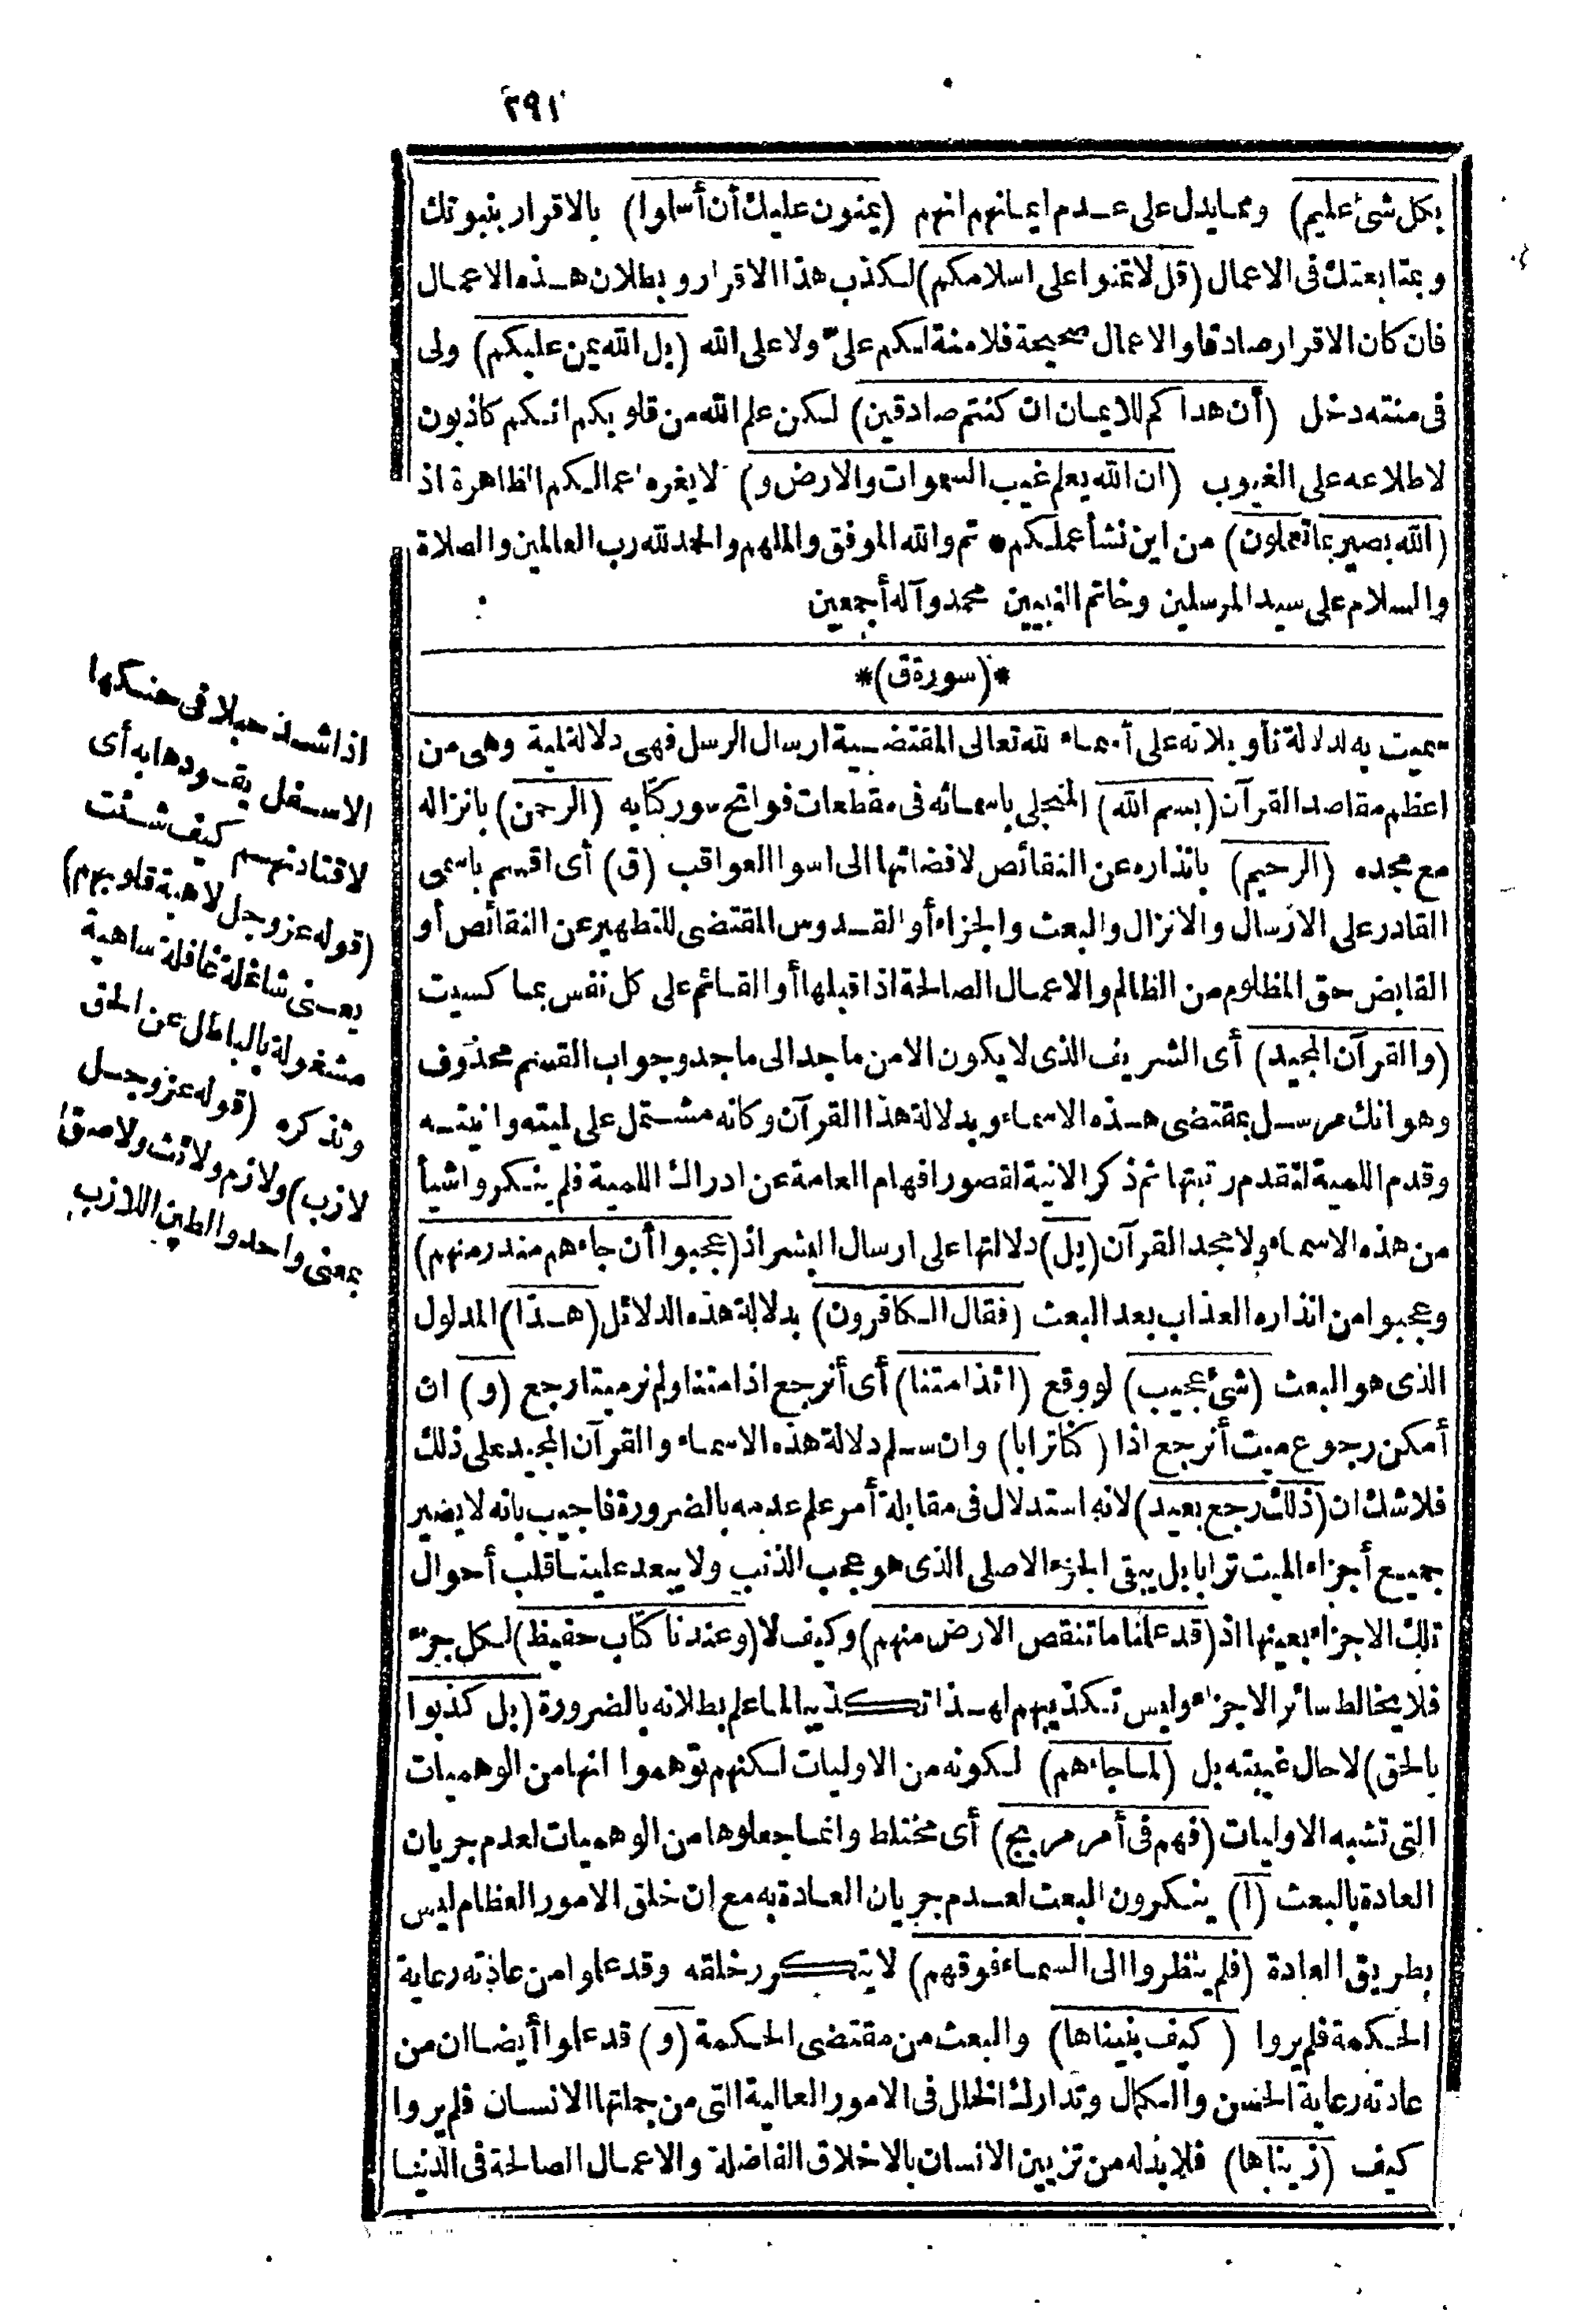 ٢٩١
بكل شئ عليم) ومما يدل على عدم ايمانهم انهم (يمنون عليك أن أسلموا) بالاقرار بنبوتك
وبمتابعتك فى الاعمال (قل لا تمنوا على اسلامكم) لكذب هذا الاقرار وبطلان هذه الاعمال
فان كان الاقرار صادقا والاعمال صحيحة فلا منة لكم علىّ ولا على الله (بل الله يمن عليكم) ولى
فى منته دخل (أن هداكم للايمان ان كنتم صادقين) لكن علم الله من قلوبكم انكم كاذبون
لاطلاعه على الغيوب (ان الله يعلم غيب السموات والارض و) لا يغره اعمالكم الظاهرة اذ
(الله بصير بما تعملون) من اين نشأ عملكم * تم والله الموفق والملهم والحمد لله رب العالمين والصلاة
والسلام على سيد المرسلين وخاتم النبيين محمد وآله أجمعين
*(سورة ق)*
سميت به لدلالة تأويلاته على أسماء لله تعالى المقتضية ارسال الرسل فهى دلالة لمية وهى من
اعظم مقاصد القرآن (بسم الله) المتجلى باسمائه فى مقطعات فواتح سور كتابه (الرحمن) بانزاله
مع مجده (الرحيم) بانذاره عن النقائص لافضائها الى اسوا العواقب (ق) أى اقسم باسمى
القادر على الارسال والانزال والبعث والجزاء أو القدوس المقتضى للتطهير عن النقائص أو
القابض حق المظلوم من الظالم والاعمال الصالحة اذا قبلها أو القائم على كل نفس بما كسبت
(والقرآن المجيد) أى الشريف الذى لا يكون الا من ماجد الى ماجد وجواب القسم محذوف
وهو انك مرسل بمقتضى هذه الاسماء وبدلالة هذا القرآن وكانه مشتمل على لميته وانيته
وقدم اللمية لتقدم رتبتها ثم ذكر الانية لقصور افهام العامة عن ادراك اللمية فلم ينكروا شيأ
من هذه الاسماء ولا مجد القرآن (بل) دلالتها على ارسال البشر اذ (عجبوا أن جاءهم منذر منهم)
وعجبوا من انذاره العذاب بعد البعث (فقال الكافرون) بدلالة هذه الدلائل (هذا) المدلول
الذى هو البعث (شئ عجيب) لو وقع (ائذا متنا) أى أنرجع اذا متنا ولم نر ميتا رجع (و) ان
أمكن رجوع ميت أنرجع اذا (كنا ترابا) وان سلم دلالة هذه الاسماء والقرآن المجيد على ذلك
فلا شك ان (ذلك رجع بعيد) لانه استدلال فى مقابلة أمر علم عدمه بالضرورة فاجيب بانه لا يضير
جميع أجزاء الميت ترابا بل يبقى الجزء الاصلى الذى هو عجب الذنب ولا يبعد علينا قلب أحوال
تلك الاجزاء بعينها اذ (قد علمنا ما تنقص الارض منهم) وكيف لا (وعندنا كتاب حفيظ) لكل جزء
فلا يخالط سائر الاجزاء وليس تكذيبهم لهذا تكذيبا لما علم بطلانه بالضرورة (بل كذبوا
بالحق) لا حال غيبته بل (لما جاءهم) لكونه من الاوليات لكنهم توهموا انها من الوهميات
التى تشبه الاوليات (فهم فى أمر مريج) أى مختلط وانما جعلوها من الوهميات لعدم جريان
العادة بالبعث (ا) ينكرون البعث لعدم جريان العادة به مع ان خلق الامور العظام ليس
بطريق العادة (فلم ينظروا الى السماء فوقهم) لا يتكرر خلقه وقد علموا من عادته رعاية
الحكمة فلم يروا (كيف بنيناها) والبعث من مقتضى الحكمة (و) قد علموا أيضا ان من
عادته رعاية الحسن والكمال وتدارك الخلل فى الامور العالية التى من جملتها الانسان فلم يروا
كيف (زيناها) فلابد له من تزيين الانسان بالاخلاق الفاضلة والاعمال الصالحة فى الدنيا
اذا شد حبلا فى حنكها
الاسفل يقودها به أى
لاقتادنهم كيف شئت
(قوله عز وجل لاهية قلوبهم)
يعنى شاغلة غافلة ساهية
مشغولة بالباطل عن الحق
وتذكره (قوله عز وجل
لازب) ولازم ولاتث ولاصق
بمعنى واحد والطين اللازب